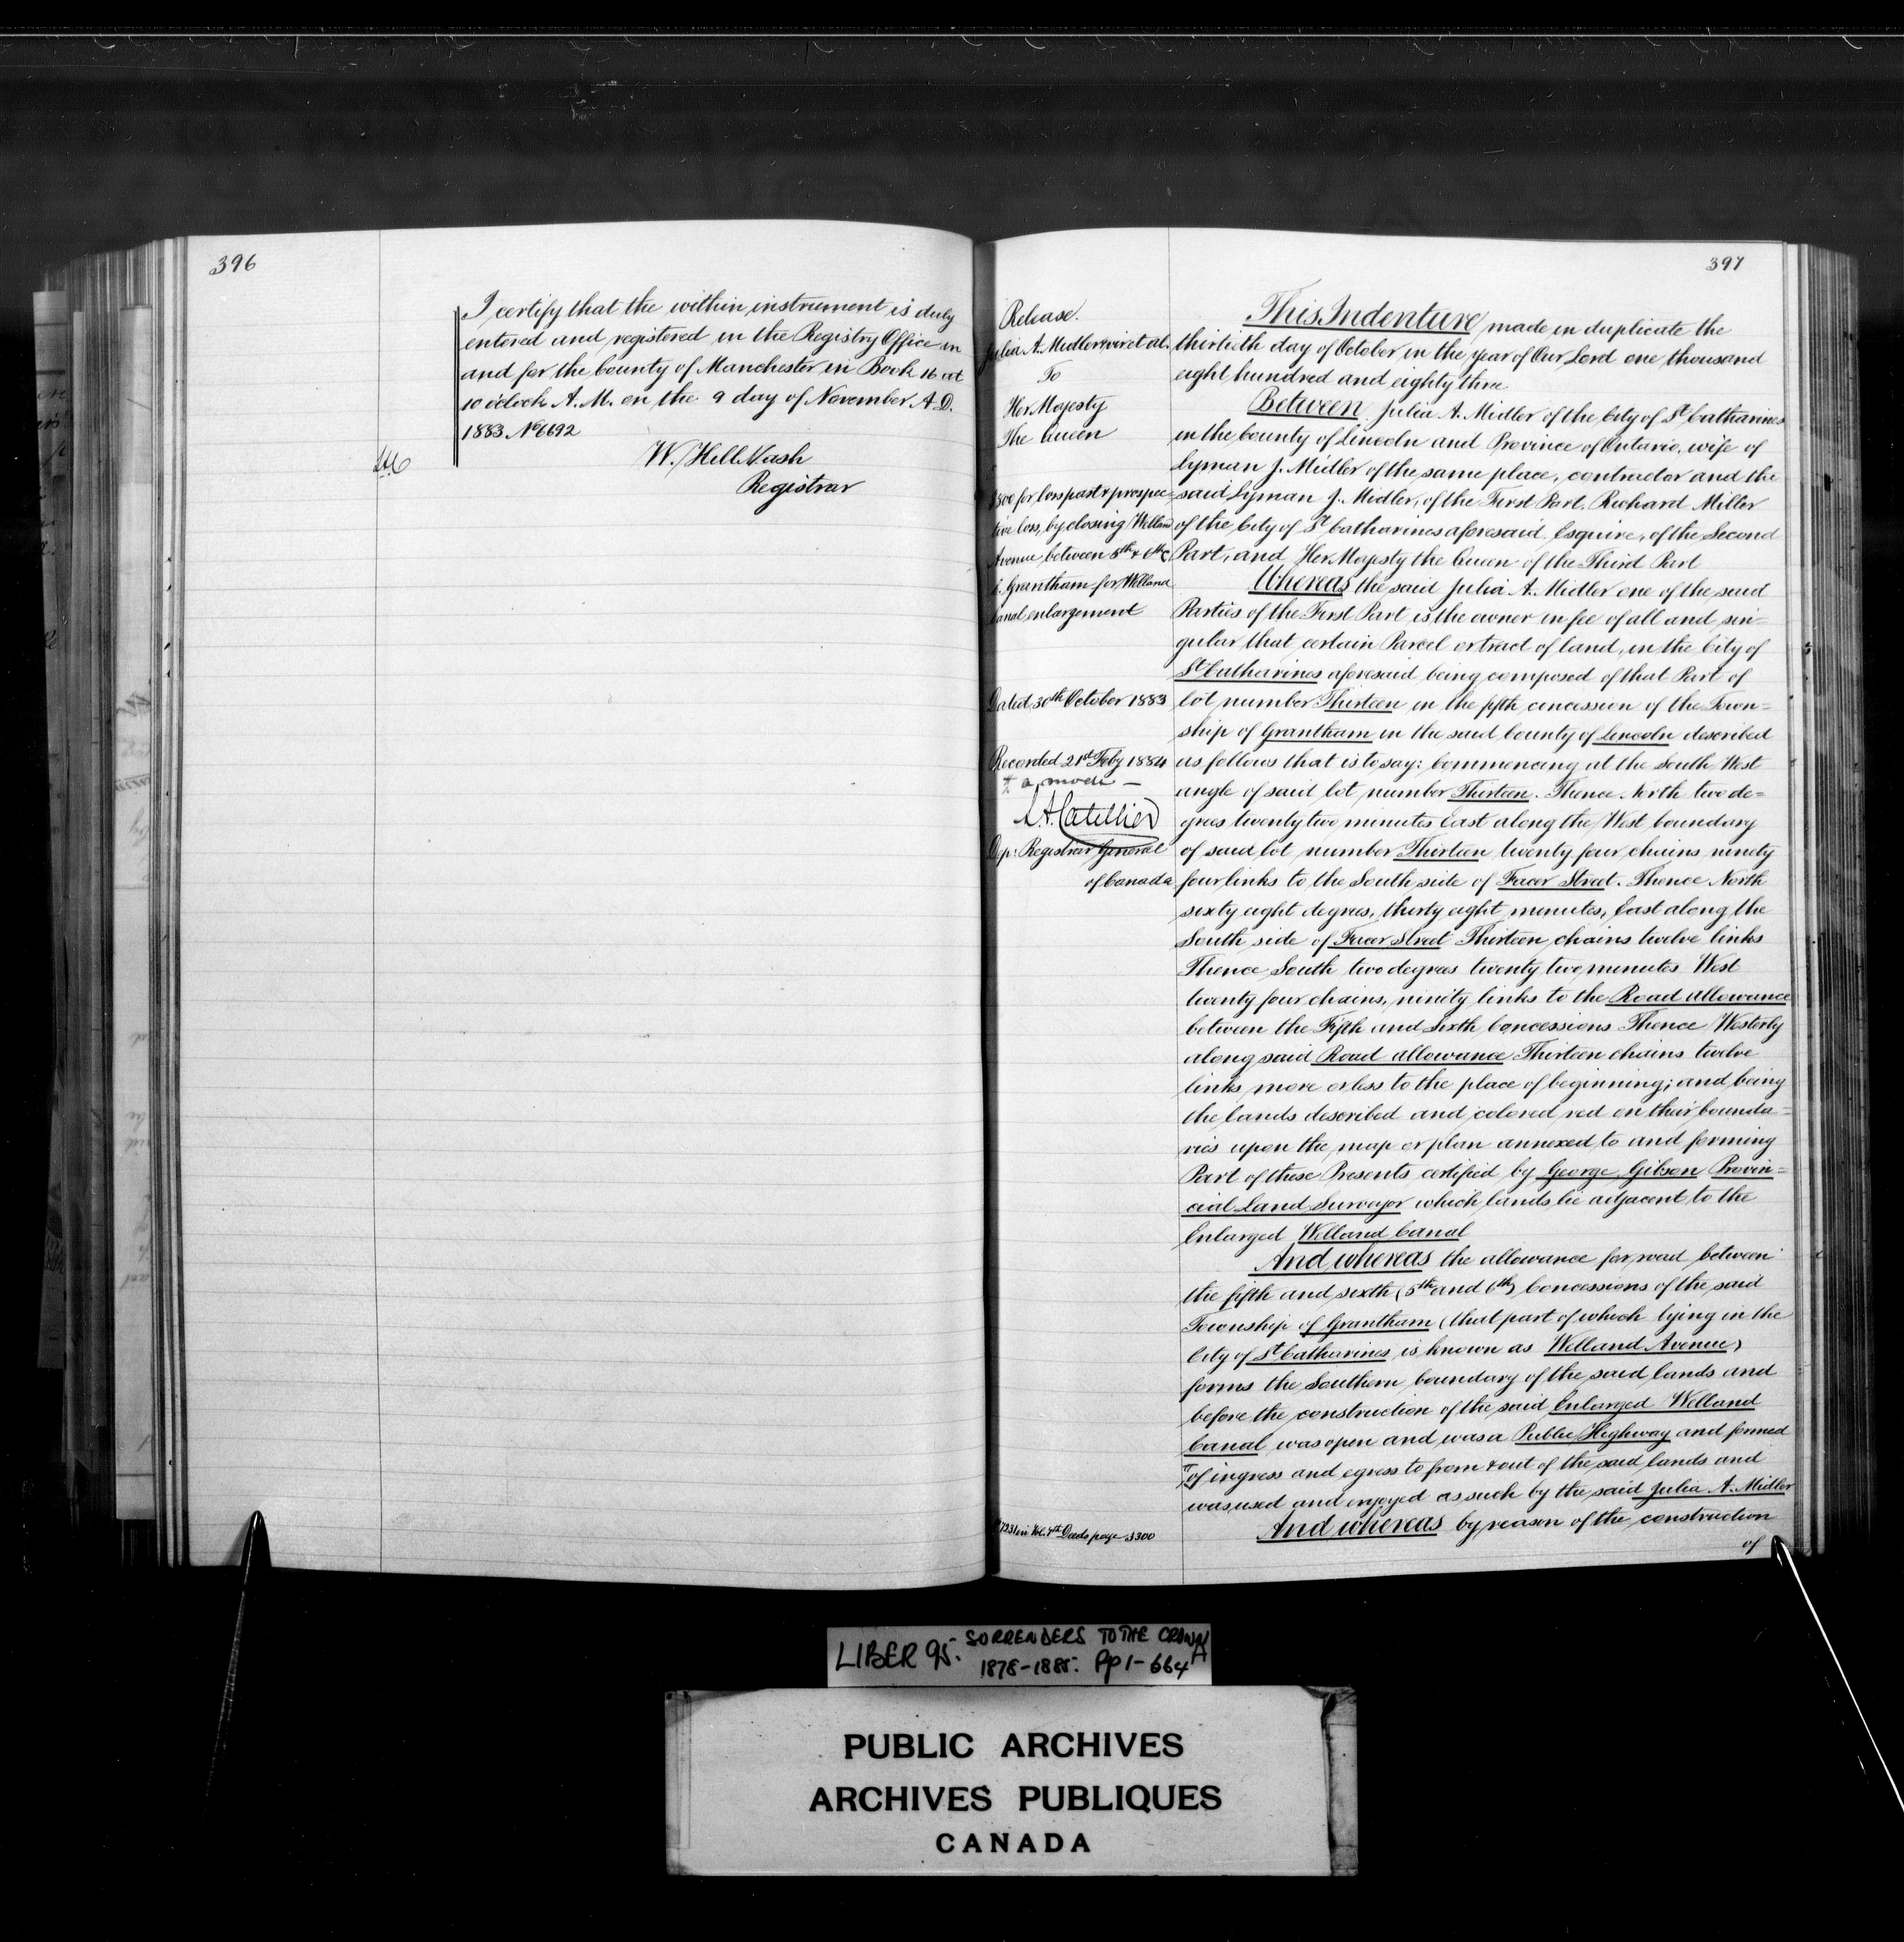 396
I certify that the within instrument is duly
entered and registered in the Registry Office in
and for the County of Manchester in Book 16 at
10 o'clock A.M. on the 9 day of November A.D.
1883 No 6692
W. Hell Nash
Registrar
397
Release.
Julia A. Midler & vir et al.
To
Her Majesty
The Queen
$500 for loss past & prospec=
tive loss, by closing Welland
Avenue between 5th & 6th C
Grantham for Welland
Canal enlargement
Dated 30th October 1883
Recorded 21st Feby 1884
L.A. Catellier
Dep: Registrar General
of Canada
in Vol. 4th Deeds page 3300
This Indenture made in duplicate the
thirtieth day of October in the year of Our Lord one thousand
eight hundred and eighty three
Between Julia A. Midler of the City of St Catharines
in the County of Lincoln and Province of Ontario, wife of
Lyman J. Midler of the same place, contractor and the
said Lyman J. Midler, of the First Part, Richard Miller
of the City of St Catharines aforesaid, Esquire, of the Second
Part, and Her Majesty the Queen of the Third Part
Whereas the said Julia A. Midler one of the said
Parties of the First Part is the owner in fee of all and sin=
gular that certain Parcel or tract of land, in the City of
St Catharines aforesaid being composed of that Part of
lot number Thirteen in the fifth concession of the Town=
ship of Grantham in the said County of Lincoln described
as follows that is to say: Commencing at the South West
angle of said lot number Thirteen. Thence North two de=
grees twenty two minutes East along the West boundary
of said lot number Thirteen twenty four chains ninety
four links to the South side of Facer Street. Thence North
sixty eight degrees, thirty eight minutes, East along the
South side of Facer Street Thirteen chains twelve links
Thence South two degrees twenty two minutes West
twenty four chains, ninety links to the Road allowance
between the Fifth and Sixth Concessions Thence Westerly
along said Road allowance Thirteen chains twelve
links more or less to the place of beginning; and being
the lands described and colored red on their bounda=
ries upon the map or plan annexed to and forming
Part of these Presents certified by George Gibson Provin=
cial Land Surveyor which lands lie adjacent to the
Enlarged Welland Canal
And whereas the allowance for road between
the fifth and sixth (5th and 6th) Concessions of the said
Township of Grantham (that part of which lying in the
City of St Catharines is known as Welland Avenue)
forms the Southern boundary of the said lands and
before the construction of the said Enlarged Welland
Canal was open and was a Public Highway and formed
of ingress and egress to from & out of the said lands and
was used and enjoyed as such by the said Julia A. Midler
And whereas by reason of the construction
of
LIBER 95. SURRENDERS TO THE CROWN
1878-1885. Pp 1-664
PUBLIC ARCHIVES
ARCHIVES PUBLIQUES
CANADA